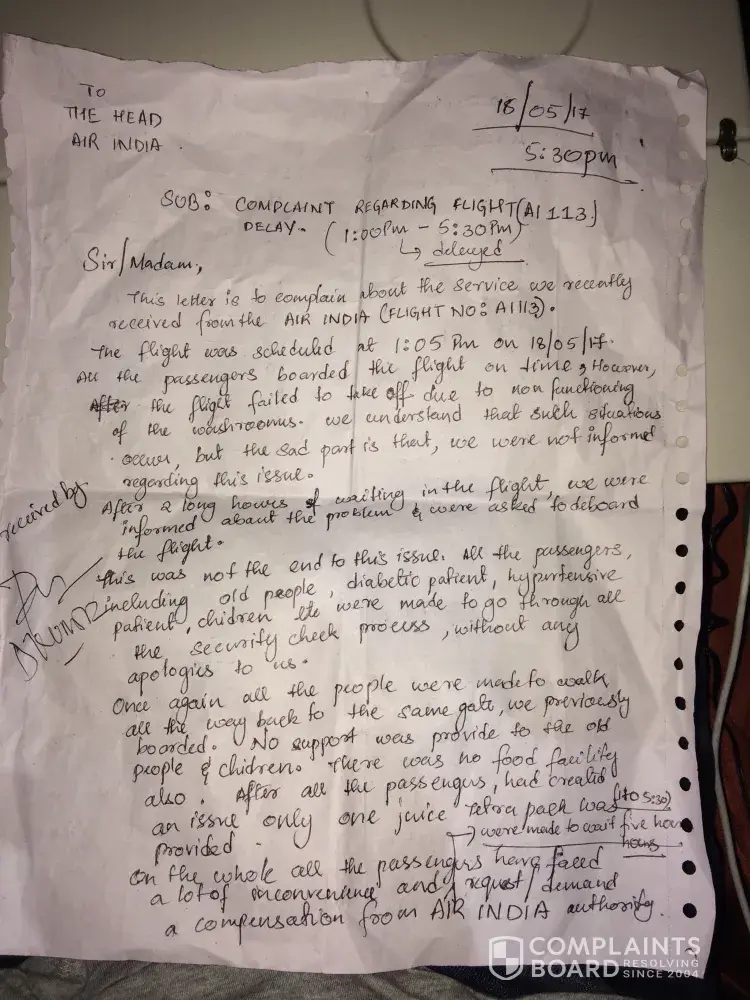 To
THE HEAD
AIR INDIA.
18/05/17
5:30pm
SUB: COMPLAINT REGARDING FLIGHT (AI 113)
DELAY. (1:00Pm - 5:30Pm)
↳ delayed
Sir/Madam,
This letter is to complain about the service we recently
received from the AIR INDIA (FLIGHT NO: AI113).
The flight was scheduled at 1:05 Pm on 18/05/17.
All the passengers boarded the flight on time, However,
After the flight failed to take off due to non functioning
of the washrooms. we understand that such situations
occur, but the sad part is that, we were not informed
regarding this issue.
After 2 long hours of waiting in the flight, we were
informed about the problem & were asked to deboard
the flight.
received by
This was not the end to this issue. All the passengers,
including old people, diabetic patient, hypertensive
patient, chidren etc were made to go through all
the security check process, without any
apologies to us.
Once again all the people were made to walk
all the way back to the same gate, we previously
boarded. No support was provide to the old
people & chidren. There was no food facility
also. After all the passengers, had created
an issue only one juice tetra pack was
provided.
(1 to 5:30)
→ were made to wait five hours
hours
On the whole all the passengers have faced
a lot of inconvenience and request/demand
a compensation from AIR INDIA authority.
COMPLAINTS
BOARD RESOLVING
SINCE 2004